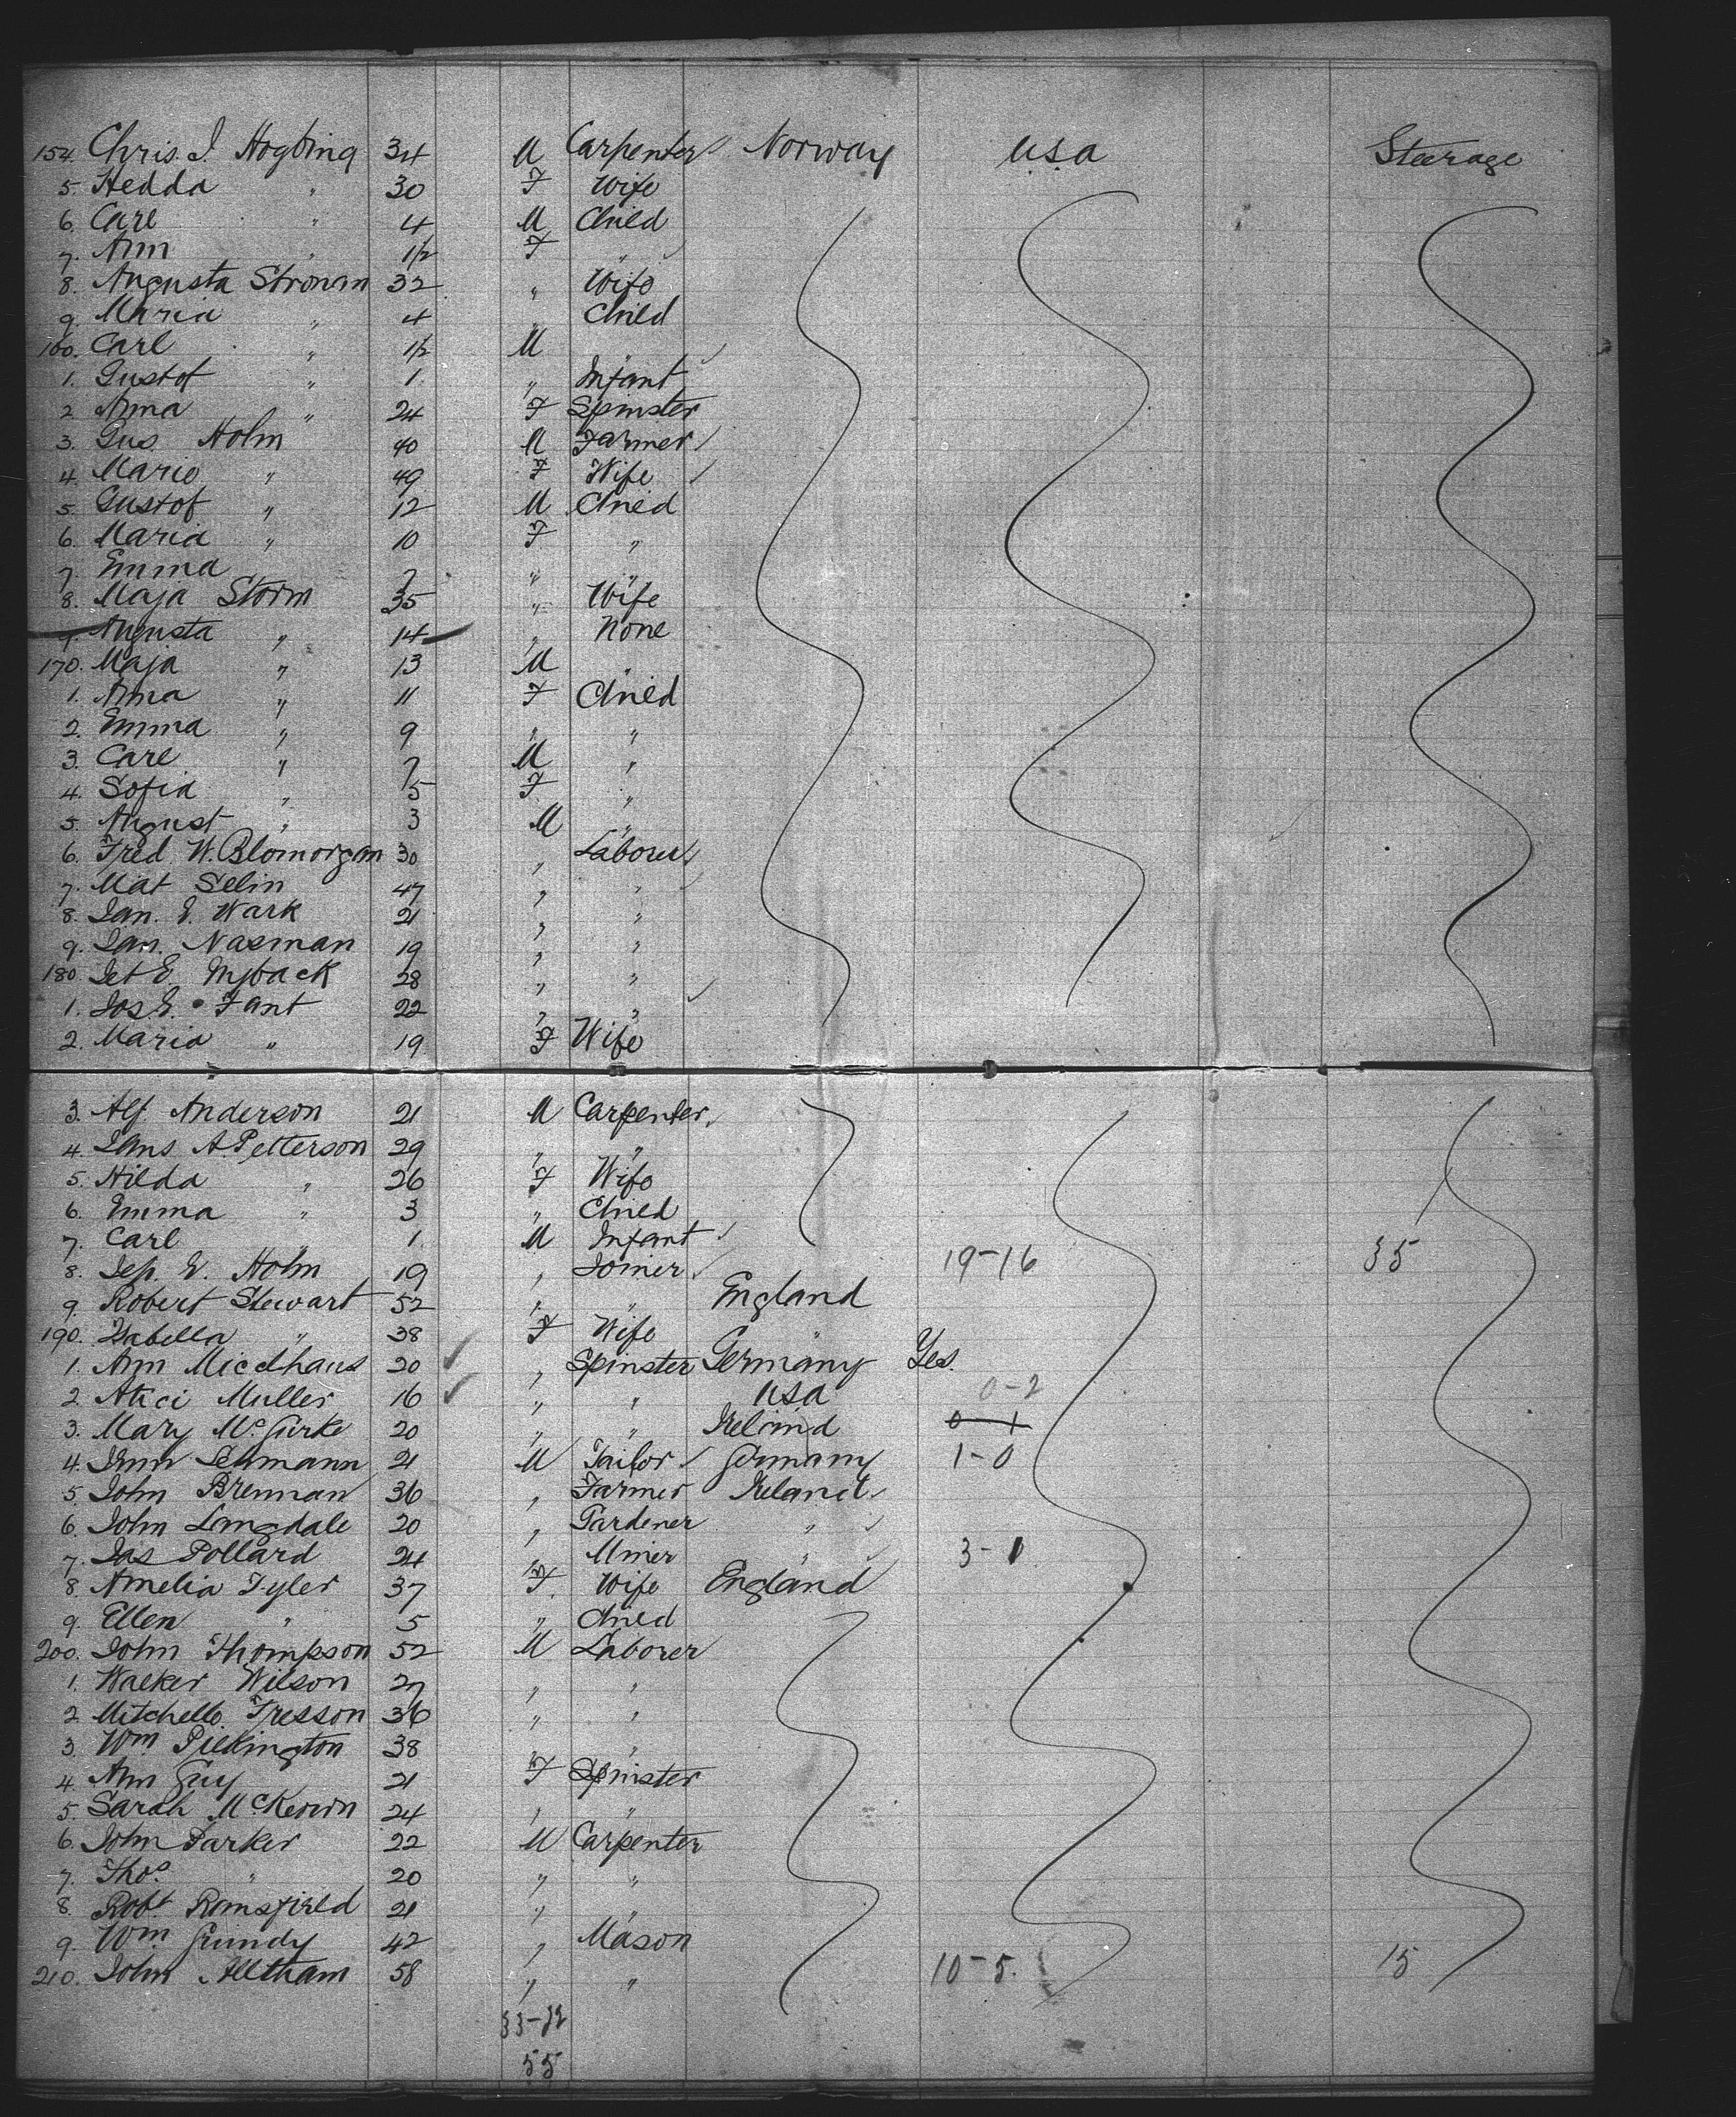 154. Chris. I. Hogbing 34 M Carpenter Norway USA Steerage
5. Hedda " 30 F Wife
6. Carl " 4 M Child
7. Ann " 1/2 F "
8. Augusta Stronan 32 " Wife
9. Maria " 4 " Child
160. Carl " 1/2 M "
1. Gustof " 1 " Infant
2. Anna " 24 F Spinster
3. Gus Holm 40 M Farmer
4. Marie " 49 F Wife
5. Gustof " 12 M Child
6. Maria " 10 F "
7. Emma 7 " "
8. Maja Storm 35 " Wife
9. Augusta " 14 " None
170. Maja " 13 M "
1. Anna " 11 F Child
2. Emma " 9 " "
3. Carl " 7 M "
4. Sofia " 5 F "
5. August " 3 M "
6. Fred W. Blomorgan 30 " Laborer
7. Mat Selin 47 " "
8. Jan. E. Wark 21 " "
9. Jan. Nasman 19 " "
180 Jet E. Myback 28 " "
1. Jos E. Fant 22 " "
2. Maria " 19 F Wife
3. Alf Anderson 21 M Carpenter
4. A. Petterson 29 " "
5. Hilda " 26 F Wife
6. Emma " 3 " Child
7. Carl " 1 M Infant
8. Jep. E. Holm 19 " Joiner 19-16 35
9. Robert Stewart 52 " " England
190. Isabella " 38 F Wife "
1. Ann Micdhaus 20 " Spinster Germany Yes.
2. Muller 16 " " USA 0-2
3. Mary McGirke 20 " " Ireland 0-1
4. Lehmann 21 M Tailor Germany 1-0
5. John Brennan 36 " Farmer Ireland
6. John Langdale 20 " Gardener "
7. Jas Pollard 24 " Miner " 3-1
8. Amelia Tyler 37 F. Wife England
9. Ellen " 5 " Child
200. John Thompson 52 M Laborer
1. Walker Wilson 27 " "
2. Mitchell Fresson 36 " "
3. Wm Pilkington 38 " "
4. Ann Guy 21 F Spinster
5. Sarah McKeown 24 " "
6. John Parker 22 M Carpenter
7. Thos. " 20 " "
8. Robt Ramsfield 21 " "
9. Wm Grundy 42 " Mason
210. John Alltham 58 " " 10-5. 15
33-22
55